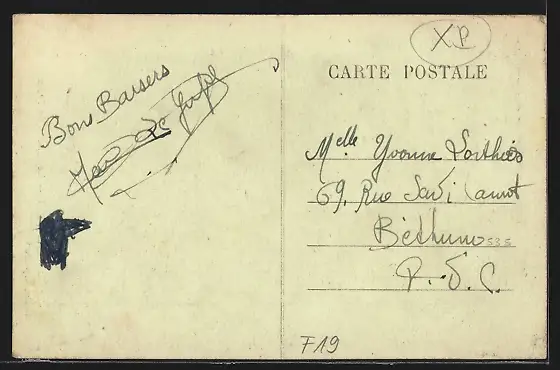 Bons Baisers
XP
CARTE POSTALE
Melle Yvonne
69, Rue Sadi Carnot
Béthune 535
P. D. C.
F19